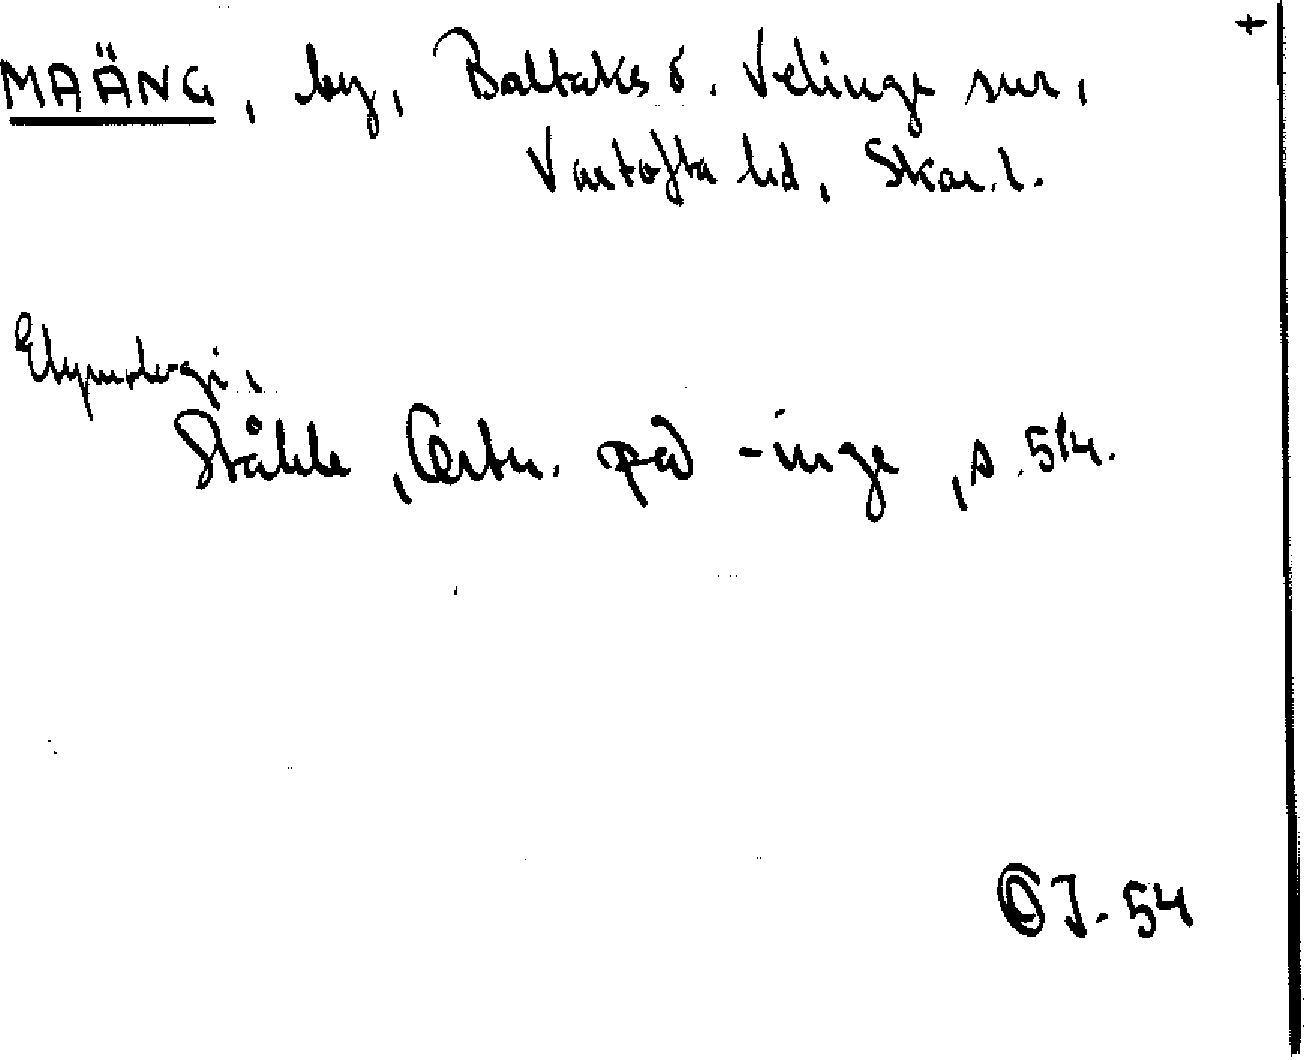 +
MAÄNG, by, Baltaks o. Velinge snr,
Vartofta hd, Skar. l.
Etymologi,
Ståhle, Ortn. på -inge, s. 514.
OJ-54